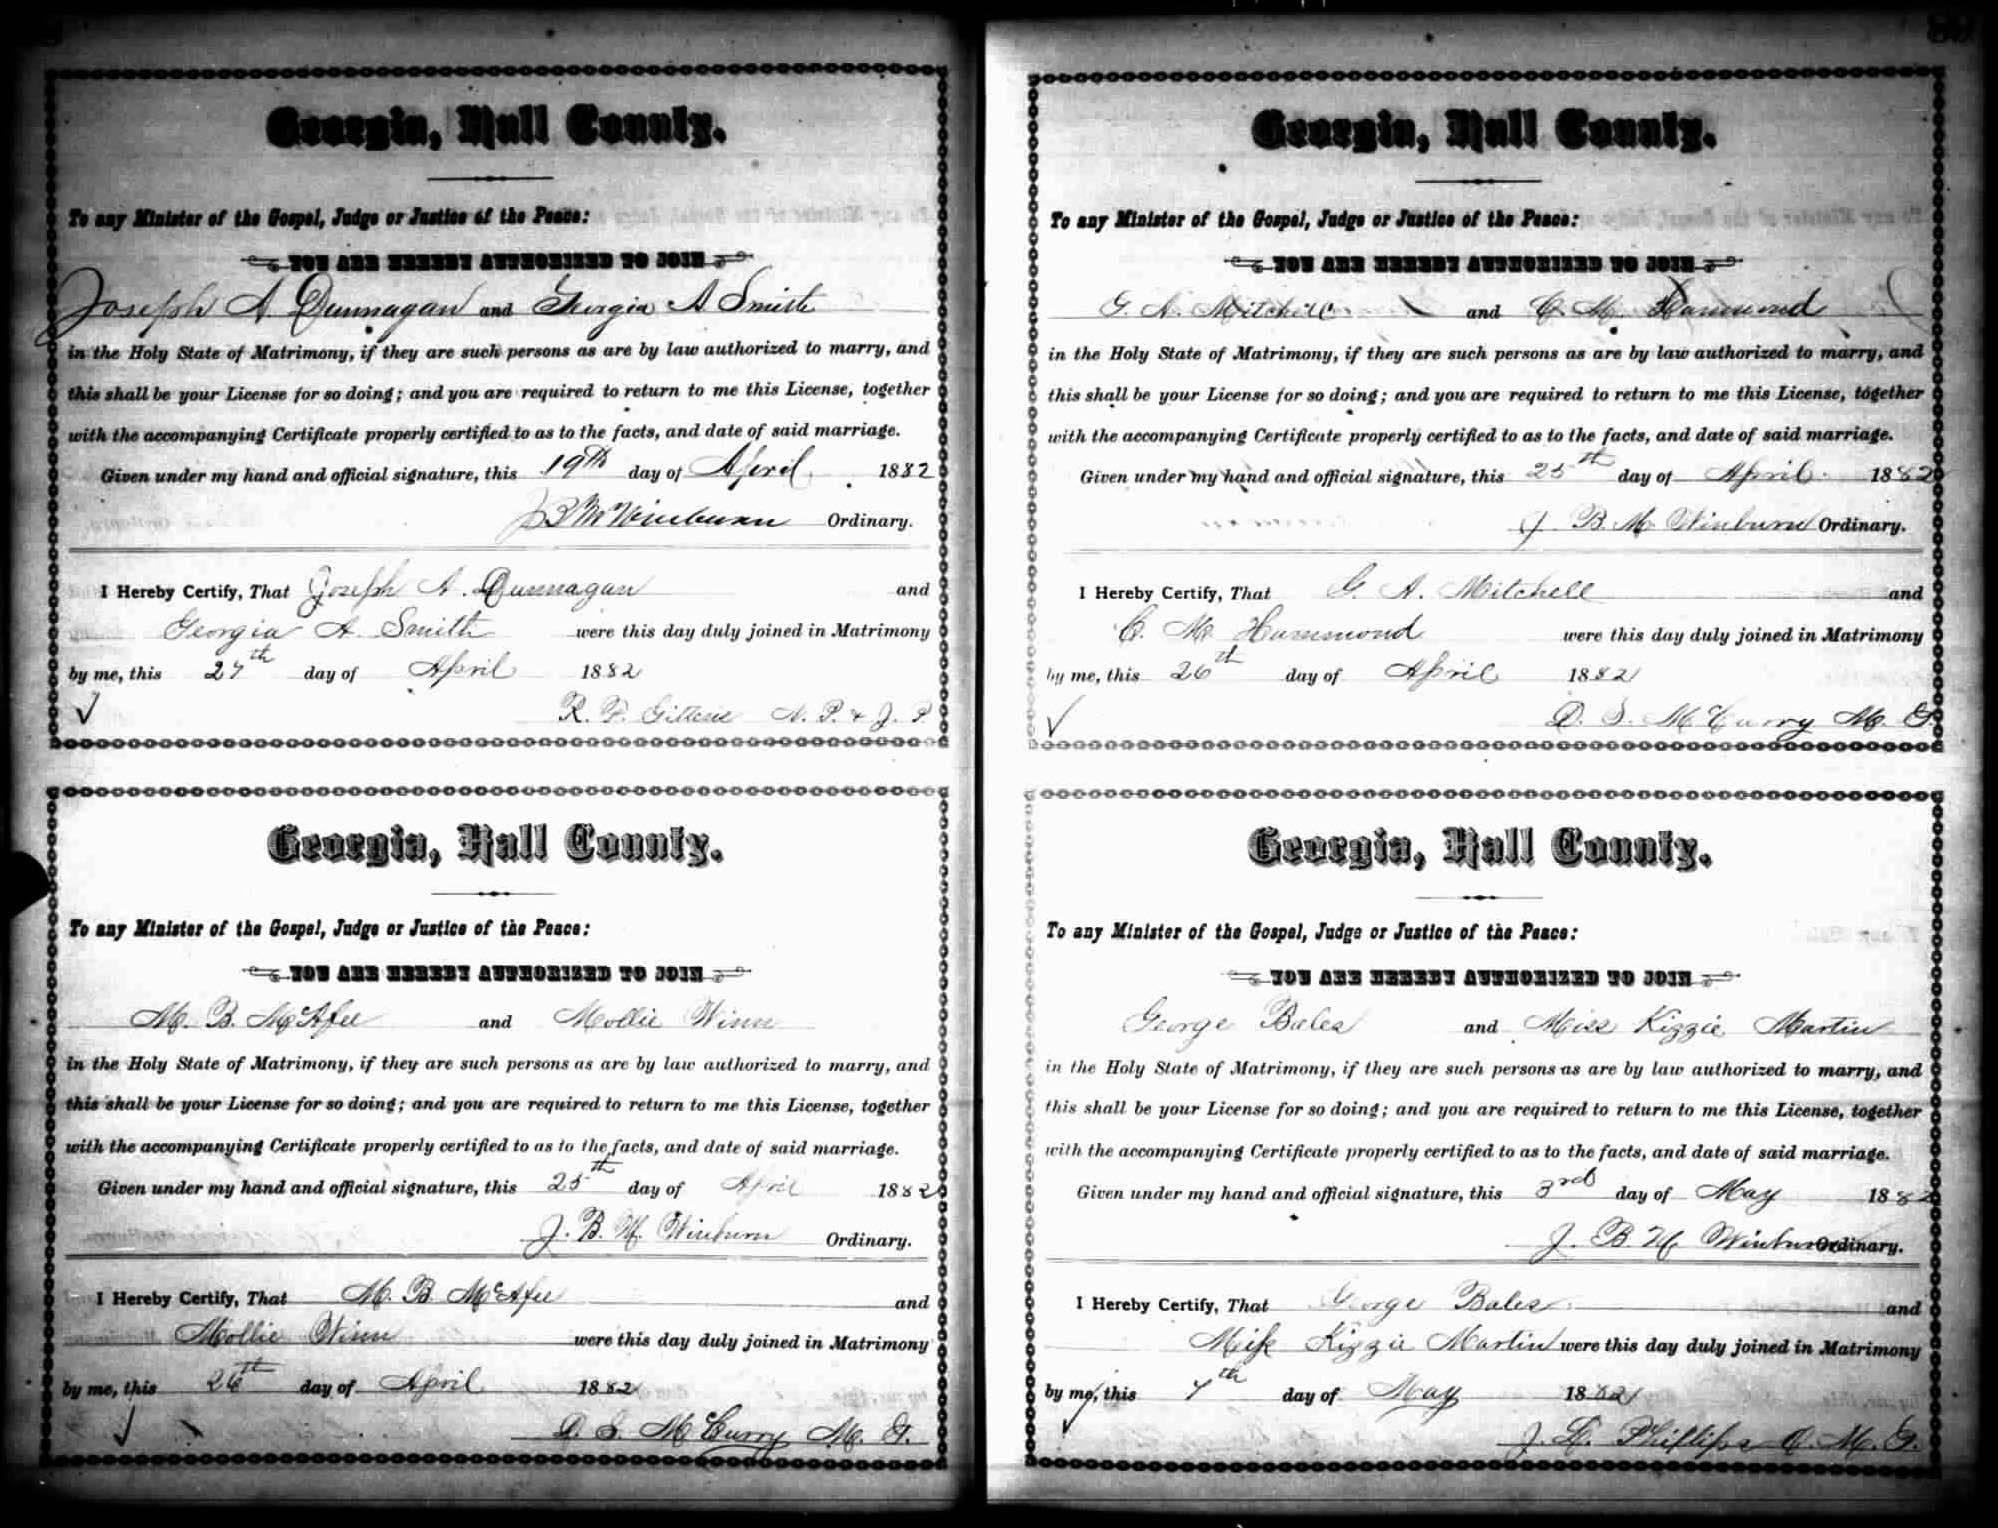 Georgia, Hall County.
To any Minister of the Gospel, Judge or Justice of the Peace:
YOU ARE HEREBY AUTHORIZED TO JOIN
Joseph A. Dunnagan and Georgia A Smith
in the Holy State of Matrimony, if they are such persons as are by law authorized to marry, and
this shall be your License for so doing; and you are required to return to me this License, together
with the accompanying Certificate properly certified to as to the facts, and date of said marriage.
Given under my hand and official signature, this 19th day of April 1882
J B M Winburn Ordinary.
I Hereby Certify, That Joseph A. Dunnagan and
Georgia A Smith were this day duly joined in Matrimony
by me, this 27th day of April 1882
R. F. N. P. & J. P.
Georgia, Hall County.
To any Minister of the Gospel, Judge or Justice of the Peace:
YOU ARE HEREBY AUTHORIZED TO JOIN
M. B. McAfee and Mollie Winn
in the Holy State of Matrimony, if they are such persons as are by law authorized to marry, and
this shall be your License for so doing; and you are required to return to me this License, together
with the accompanying Certificate properly certified to as to the facts, and date of said marriage.
Given under my hand and official signature, this 25th day of April 1882
J. B. M. Winburn Ordinary.
I Hereby Certify, That M. B McAfee and
Mollie Winn were this day duly joined in Matrimony
by me, this 26th day of April 1882
D. S. McCurry M. G.
Georgia, Hall County.
To any Minister of the Gospel, Judge or Justice of the Peace:
YOU ARE HEREBY AUTHORIZED TO JOIN
G. A. Mitchell and C. M. Hammond
in the Holy State of Matrimony, if they are such persons as are by law authorized to marry, and
this shall be your License for so doing; and you are required to return to me this License, together
with the accompanying Certificate properly certified to as to the facts, and date of said marriage.
Given under my hand and official signature, this 25th day of April 1882
J. B. M. Winburn Ordinary.
I Hereby Certify, That G. A. Mitchell and
C. M. Hammond were this day duly joined in Matrimony
by me, this 26th day of April 1882
D. S. McCurry M. G.
Georgia, Hall County.
To any Minister of the Gospel, Judge or Justice of the Peace:
YOU ARE HEREBY AUTHORIZED TO JOIN
George Bales and Miss Kizzie Martin
in the Holy State of Matrimony, if they are such persons as are by law authorized to marry, and
this shall be your License for so doing; and you are required to return to me this License, together
with the accompanying Certificate properly certified to as to the facts, and date of said marriage.
Given under my hand and official signature, this 3rd day of May 1882
J. B. M. Winburn Ordinary.
I Hereby Certify, That George Bales and
Miss Kizzie Martin were this day duly joined in Matrimony
by me, this 7th day of May 1882
J. L. Phillips O. M. G.